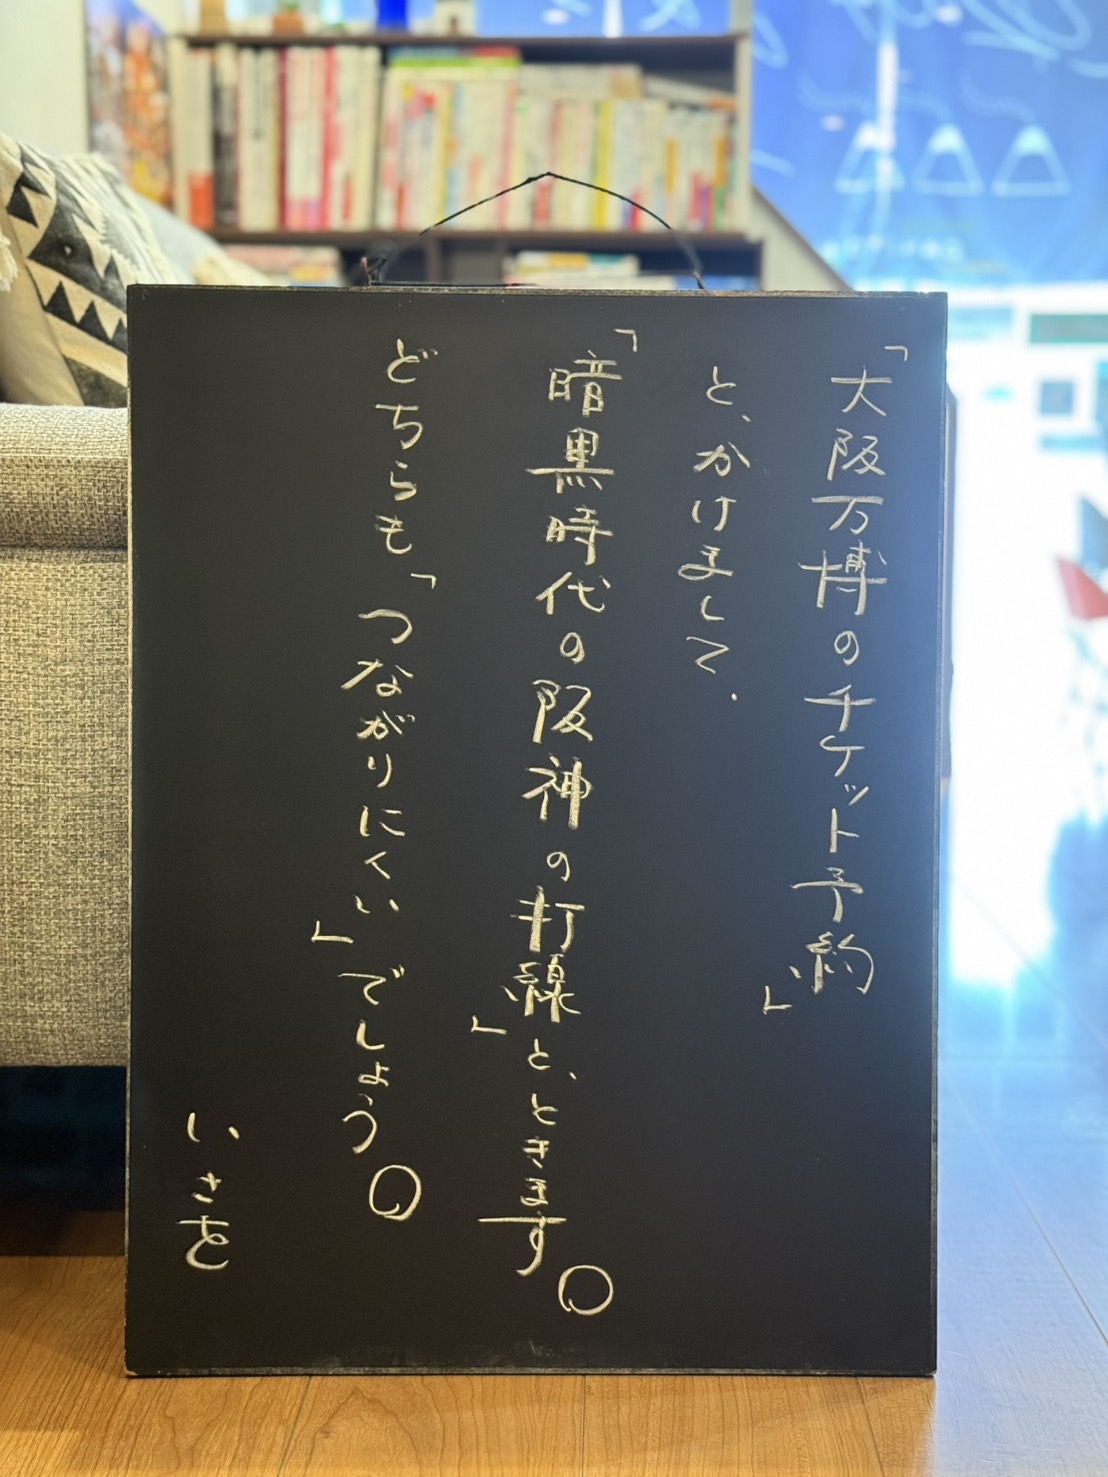 「大阪万博のチケット予約」
と、かけまして、
「暗黒時代の阪神の打線」と、ときます。
どちらも「つながりにくい」でしょう。
いさを